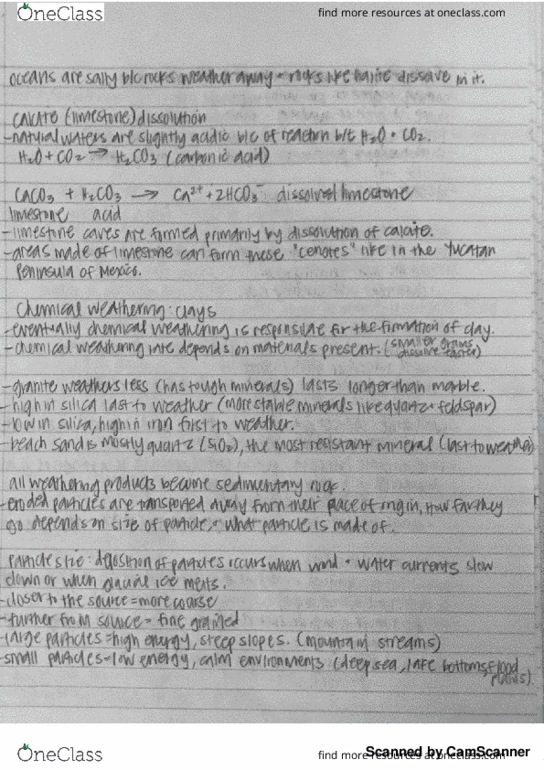 OneClass
find more resources at oneclass.com
oceans are salty b/c rocks weather away - rocks like halite dissolve in it.
calcite (limestone) dissolution
-natural waters are slightly acidic b/c of reaction b/t H₂O + CO₂.
H₂O + CO₂ → H₂CO₃ (carbonic acid)
CaCO₃ + H₂CO₃ → Ca²⁺ + 2HCO₃⁻ dissolved limestone
limestone acid
-limestone caves are formed primarily by dissolution of calcite.
-areas made of limestone can form these "cenotes" like in the Yucatan
Peninsula of Mexico.
Chemical weathering: clays
-eventually chemical weathering is responsible for the formation of clay.
-chemical weathering rate depends on materials present. (smaller grains
dissolve faster)
-granite weathers less (has tough minerals) lasts longer than marble.
-high in silica last to weather (more stable minerals like quartz + feldspar)
-low in silica, high in iron first to weather.
-beach sand is mostly quartz (SiO₂), the most resistant mineral (last to weather)
all weathering products become sedimentary rock.
-eroded particles are transported away from their place of origin, how far they
go depends on size of particle + what particle is made of.
particle size: deposition of particles occurs when wind + water currents slow
down or when glacial ice melts.
-closer to the source = more coarse
-further from source = fine grained
-large particles = high energy, steep slopes. (mountain streams)
-small particles = low energy, calm environments (deep sea, lake bottoms, flood
plains)
OneClass
find more resources at oneclass.com
Scanned by CamScanner